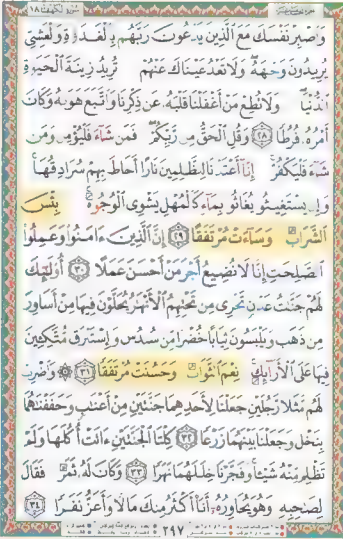 سُورَةُ الكَهْف ١٨
وَاصْبِرْ نَفْسَكَ مَعَ الَّذِينَ يَدْعُونَ رَبَّهُم بِالْغَدَوٰةِ وَالْعَشِيِّ
يُرِيدُونَ وَجْهَهُۥ وَلَا تَعْدُ عَيْنَاكَ عَنْهُمْ تُرِيدُ زِينَةَ الْحَيَوٰةِ
الدُّنْيَا وَلَا تُطِعْ مَنْ أَغْفَلْنَا قَلْبَهُۥ عَن ذِكْرِنَا وَاتَّبَعَ هَوَىٰهُ وَكَانَ
أَمْرُهُۥ فُرُطًا ٢٨ وَقُلِ الْحَقُّ مِن رَّبِّكُمْ فَمَن شَآءَ فَلْيُؤْمِن وَمَن
شَآءَ فَلْيَكْفُرْ إِنَّآ أَعْتَدْنَا لِلظَّٰلِمِينَ نَارًا أَحَاطَ بِهِمْ سُرَادِقُهَا
وَإِن يَسْتَغِيثُوا يُغَاثُوا بِمَآءٍ كَالْمُهْلِ يَشْوِي الْوُجُوهَ بِئْسَ
الشَّرَابُ وَسَآءَتْ مُرْتَفَقًا ٢٩ إِنَّ الَّذِينَ ءَامَنُوا وَعَمِلُوا
الصَّٰلِحَٰتِ إِنَّا لَا نُضِيعُ أَجْرَ مَنْ أَحْسَنَ عَمَلًا ٣٠ أُو۟لَٰٓئِكَ
لَهُمْ جَنَّٰتُ عَدْنٍ تَجْرِي مِن تَحْتِهِمُ الْأَنْهَٰرُ يُحَلَّوْنَ فِيهَا مِنْ أَسَاوِرَ
مِن ذَهَبٍ وَيَلْبَسُونَ ثِيَابًا خُضْرًا مِّن سُندُسٍ وَإِسْتَبْرَقٍ مُّتَّكِـِٔينَ
فِيهَا عَلَى الْأَرَآئِكِ نِعْمَ الثَّوَابُ وَحَسُنَتْ مُرْتَفَقًا ٣١ ۞ وَاضْرِبْ
لَهُم مَّثَلًا رَّجُلَيْنِ جَعَلْنَا لِأَحَدِهِمَا جَنَّتَيْنِ مِنْ أَعْنَٰبٍ وَحَفَفْنَٰهُمَا
بِنَخْلٍ وَجَعَلْنَا بَيْنَهُمَا زَرْعًا ٣٢ كِلْتَا الْجَنَّتَيْنِ ءَاتَتْ أُكُلَهَا وَلَمْ
تَظْلِم مِّنْهُ شَيْـًٔا وَفَجَّرْنَا خِلَٰلَهُمَا نَهَرًا ٣٣ وَكَانَ لَهُۥ ثَمَرٌ فَقَالَ
لِصَٰحِبِهِۦ وَهُوَ يُحَاوِرُهُۥٓ أَنَا۠ أَكْثَرُ مِنكَ مَالًا وَأَعَزُّ نَفَرًا ٣٤
٢٩٧